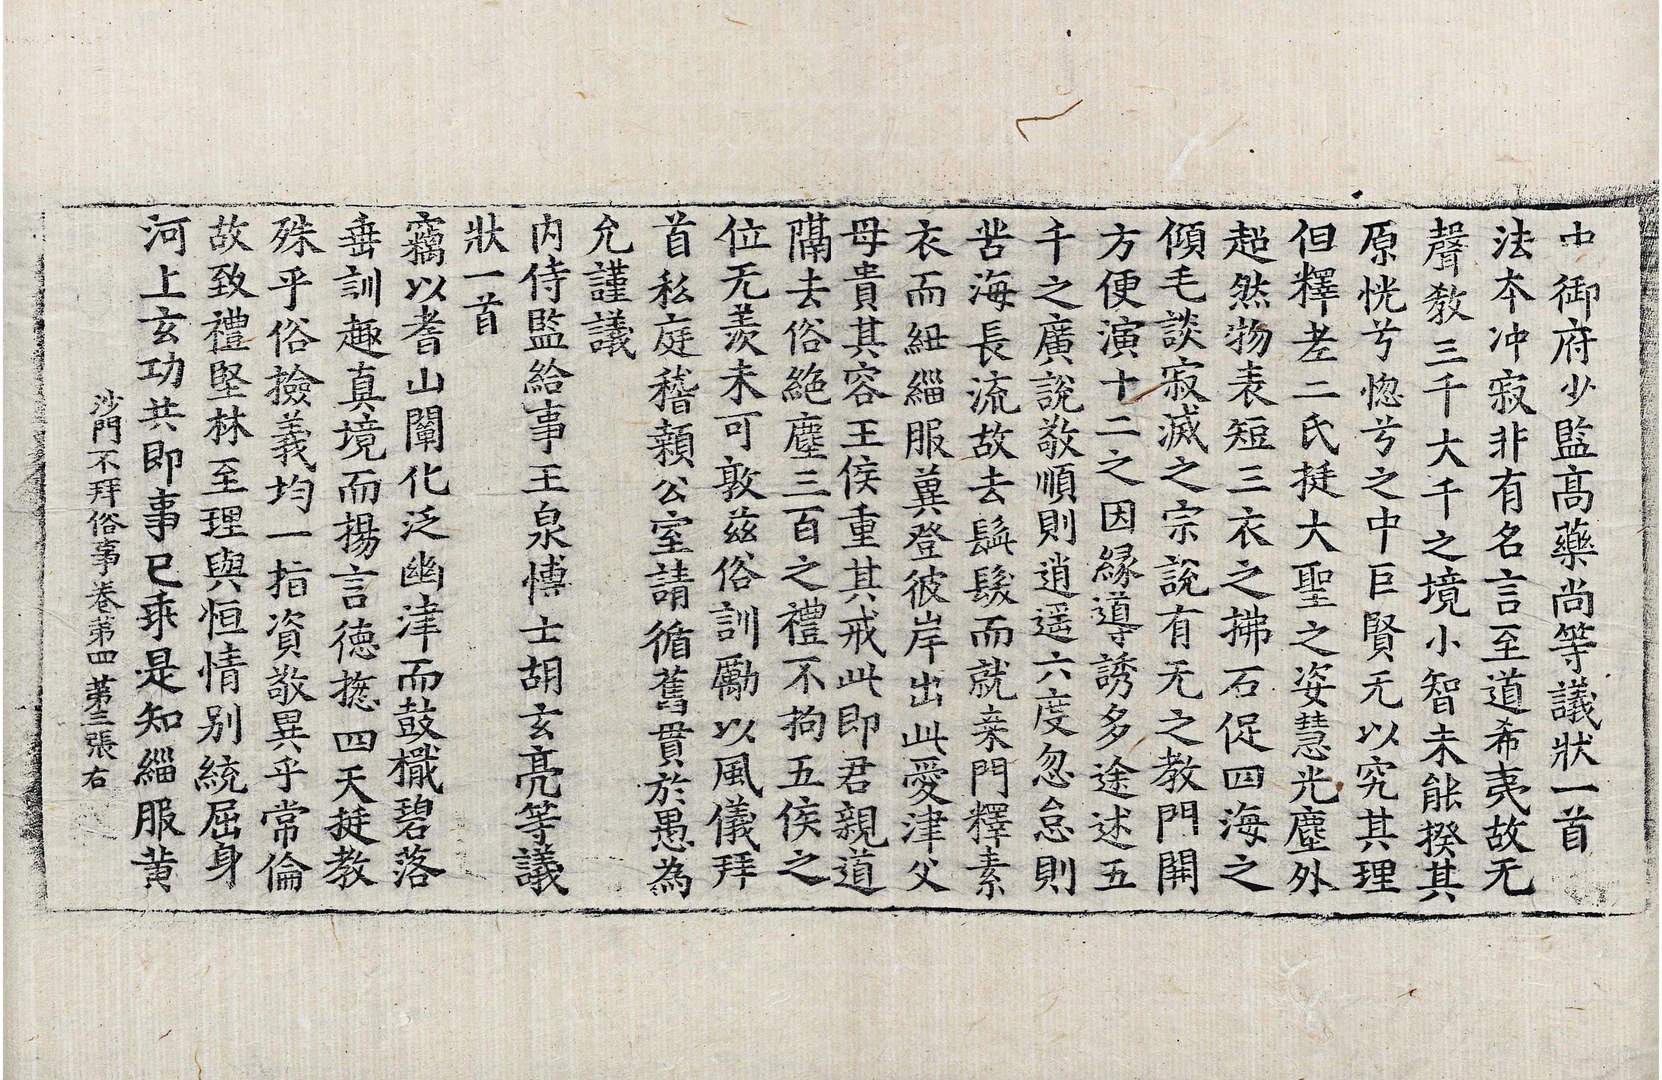 中御府少監高藥尚等議狀一首
法夲冲寂非有名言至道希夷故无
聲敎三千大千之境小智未能揆其
原恍兮惚兮之中巨賢无以究其理
但釋老二氏挺大聖之姿慧光塵外
超然物表短三衣之拂石促四海之
傾毛談寂滅之宗說有无之教門開
方便演十二之因緣導誘多途述五
千之廣說敬順則逍遥六度忽怠則
苦海長流故去髩髮而就桒門釋素
衣而紐緇服冀登彼岸出此愛津父
母貴其容王侯重其戒此即君親道
隔去俗絶塵三百之禮不拘五侯之
位无羨未可敦兹俗訓勵以風儀拜
首私庭稽顙公室請循舊貫於愚為
允謹議
内侍監給事王泉博士胡玄亮等議
狀一首
竊以耆山闡化泛幽津而鼓檝碧落
垂訓趣真境而揚言德揔四天挻教
殊乎俗撿義均一指資敬異乎常倫
故致禮堅林至理與恒情别統屈身
河上玄功共即事已乖是知緇服黄
沙門不拜俗事卷第四 第三張 右